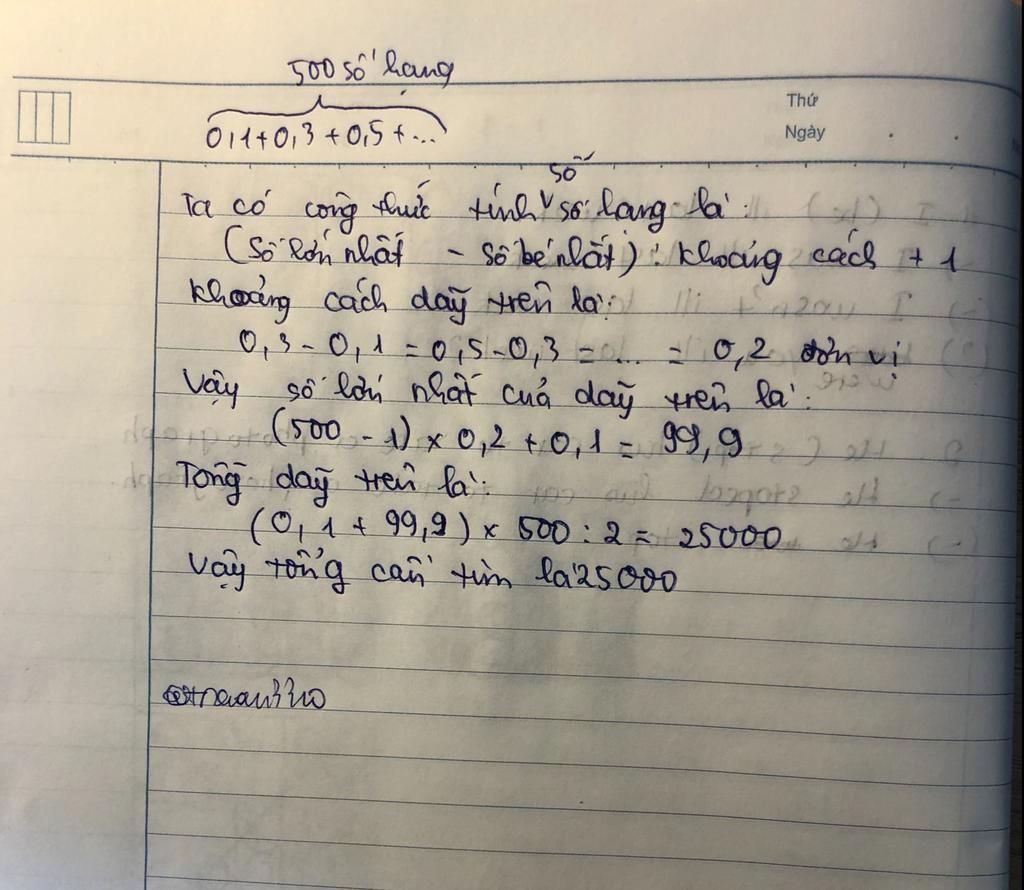 500 số hạng
Thứ
0,1+0,3+0,5+...
Ngày
số
Ta có công thức tính số hạng là:
(Số lớn nhất - số bé nhất) : khoảng cách + 1
khoảng cách dãy trên là:
0,3-0,1=0,5-0,3=...=0,2 đơn vị
Vậy số lớn nhất của dãy trên là:
(500-1)×0,2+0,1=99,9
Tổng dãy trên là:
(0,1+99,9)×500:2=25000
Vậy tổng cần tìm là 25000